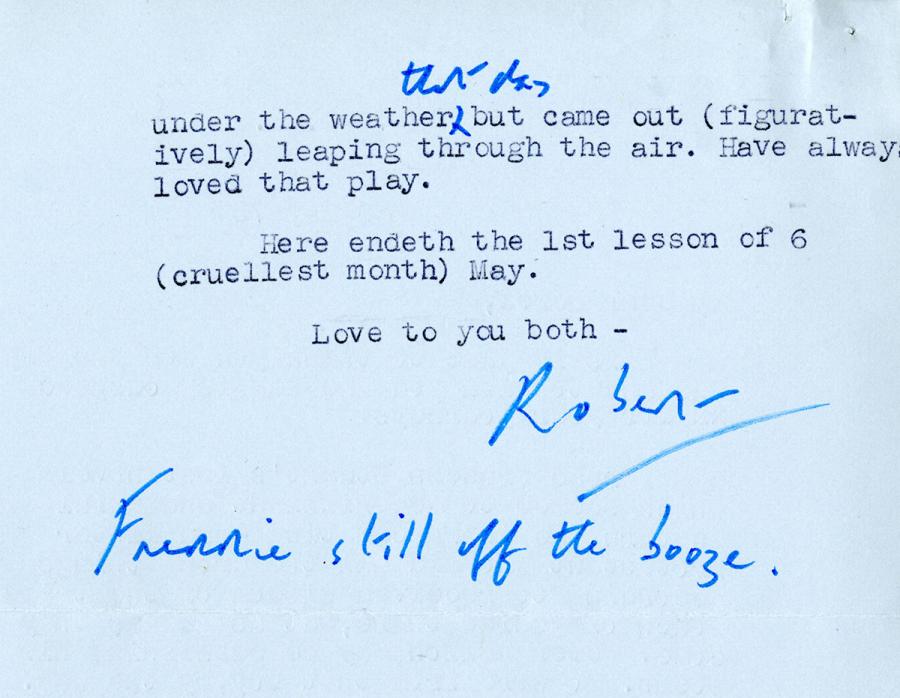 that day
under the weather but came out (figurat-
ively) leaping through the air. Have always
loved that play.
Here endeth the 1st lesson of 6
(cruellest month) May.
Love to you both -
Robert
Freddie still off the booze.